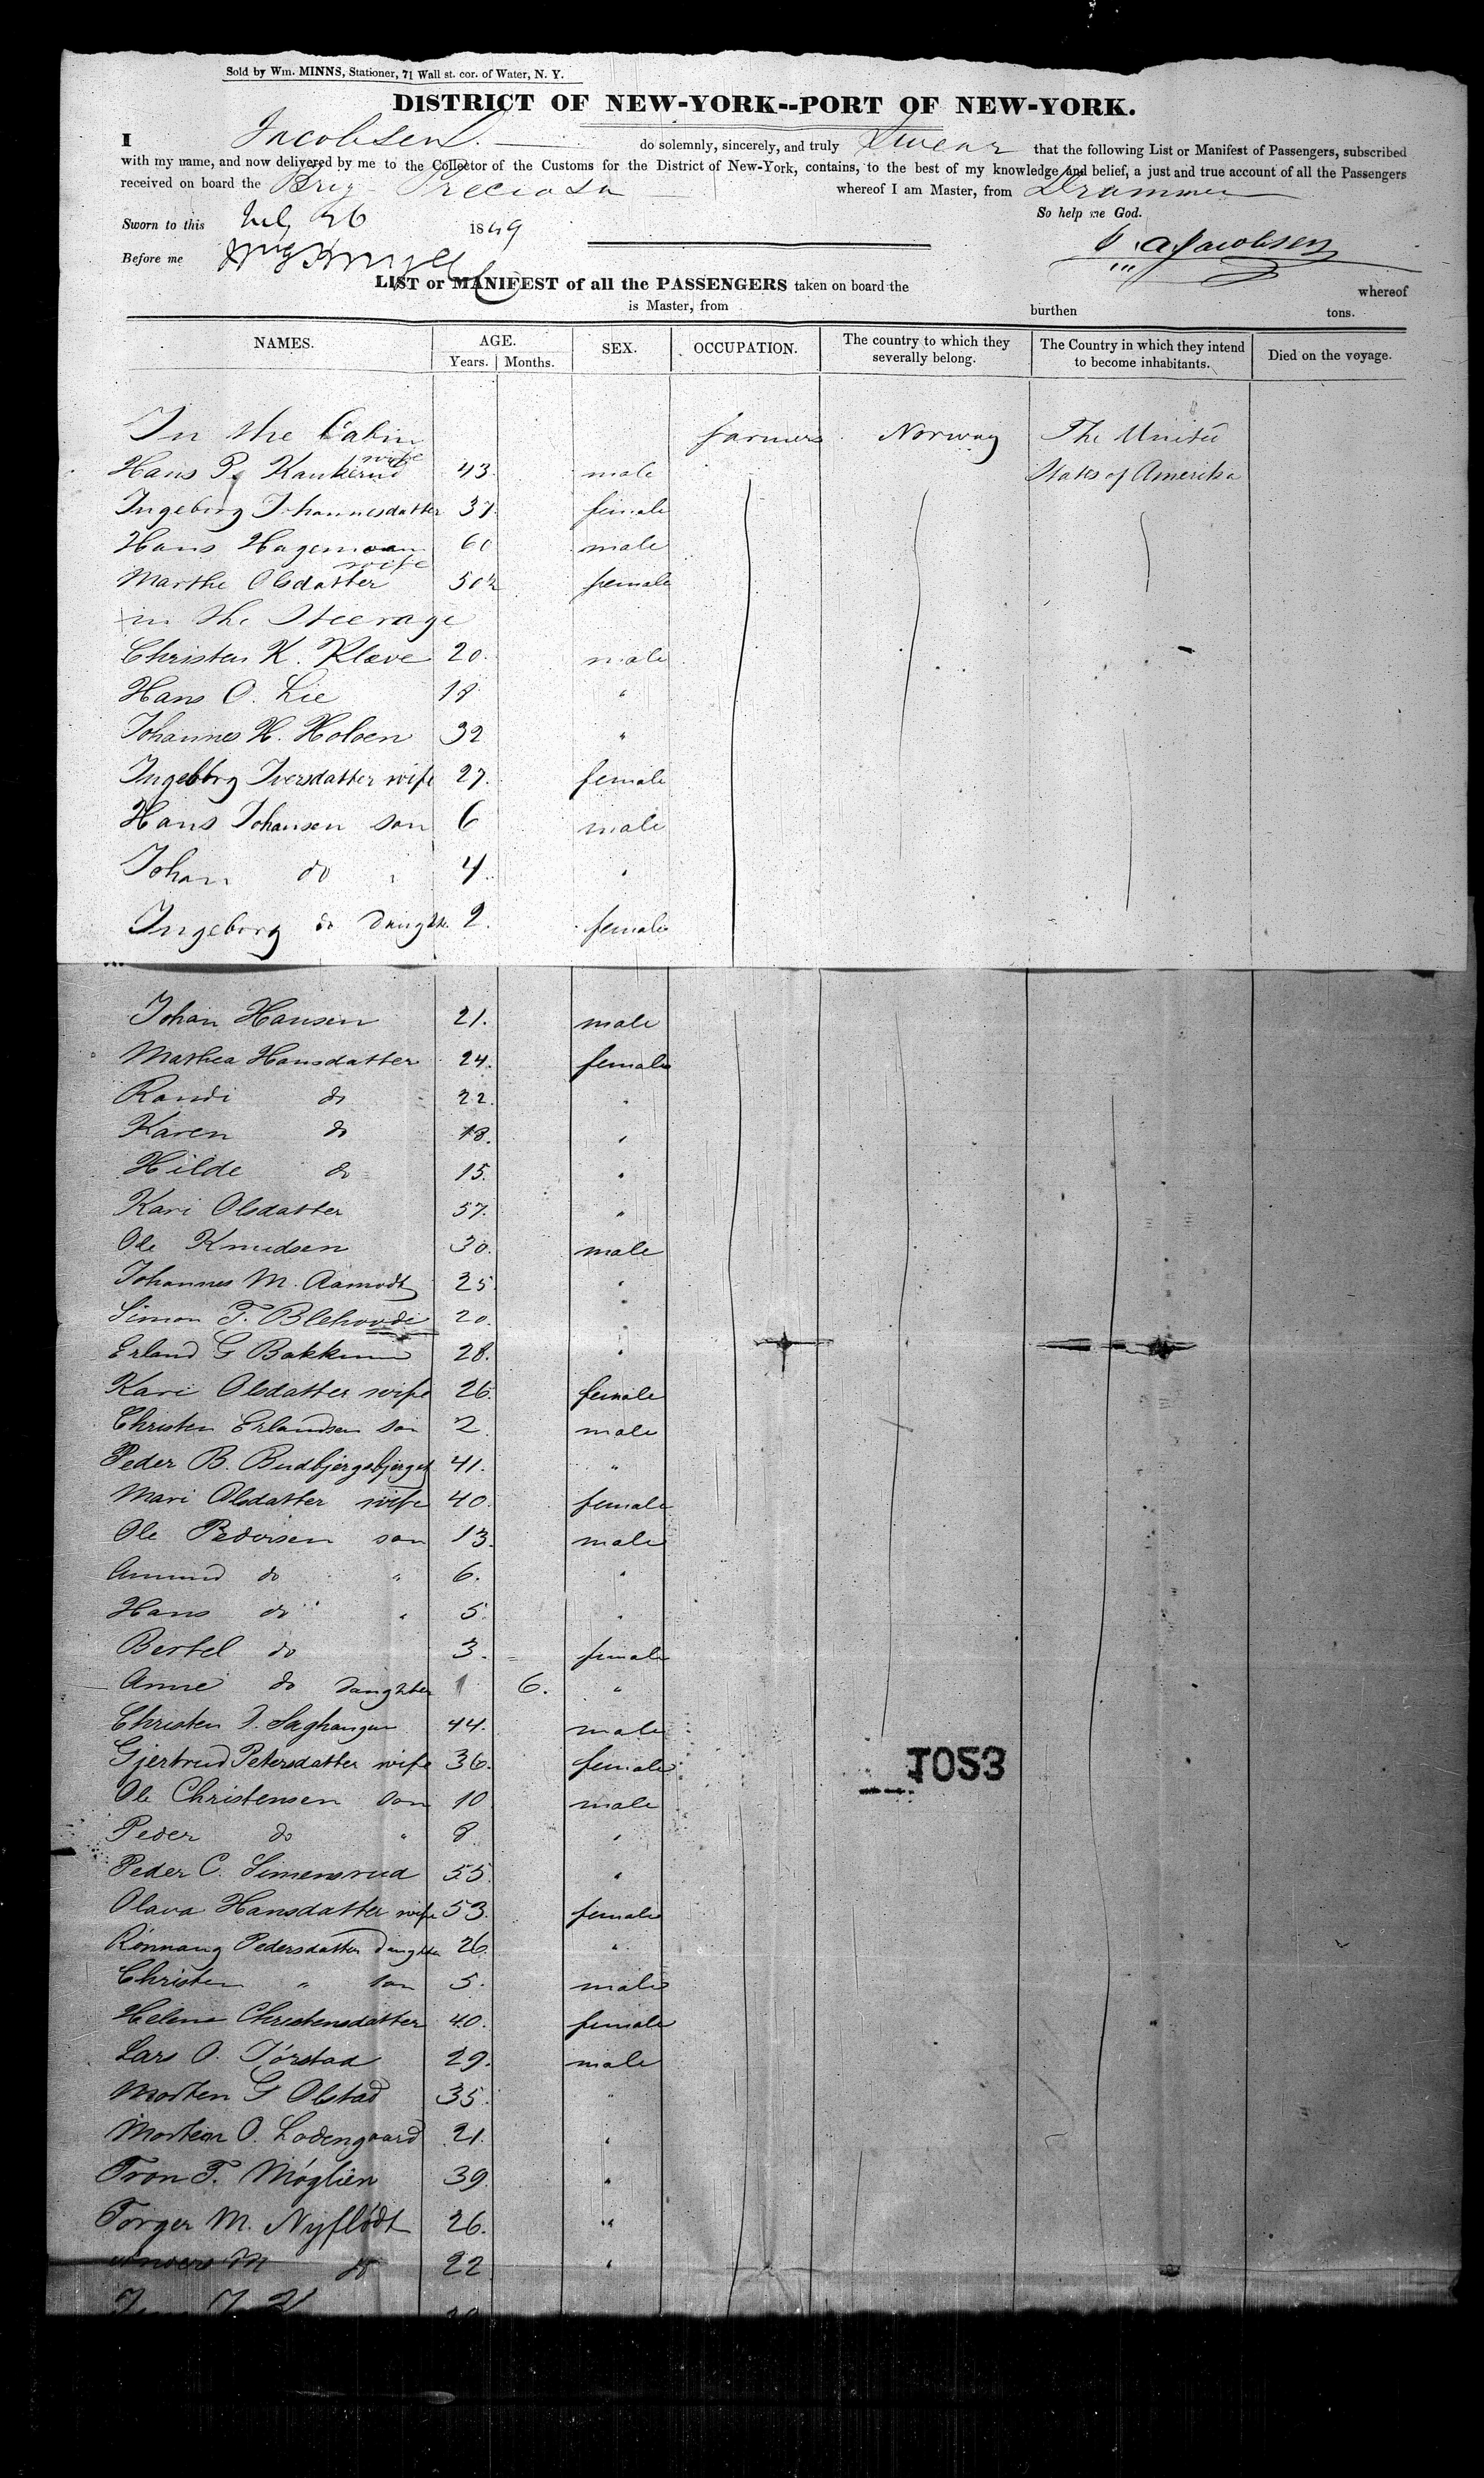 Sold by Wm. MINNS, Stationer, 71 Wall st. cor. of Water, N. Y.
DISTRICT OF NEW-YORK--PORT OF NEW-YORK.
I Jacobsen do solemnly, sincerely, and truly Swear that the following List or Manifest of Passengers, subscribed
with my name, and now delivered by me to the Collector of the Customs for the District of New-York, contains, to the best of my knowledge and belief, a just and true account of all the Passengers
received on board the Brig Preciosa whereof I am Master, from Drammen
So help me God.
Sworn to this July 26 1849
Before me
A Jacobsen
LIST or MANIFEST of all the PASSENGERS taken on board the whereof
is Master, from burthen tons.
NAMES. AGE. Years. Months. SEX. OCCUPATION. The country to which they severally belong. The Country in which they intend to become inhabitants. Died on the voyage.
In the Cabin farmers Norway The United
Hans P. 43. male States of Amerika
wife
Ingeborg Johannesdatter 37. female
Hans Hagemoan 60 male
wife
Marthe Olsdatter 50 female
in the Steerage
Christen K. Klæve 20. male
Hans O. Lie "
Johannes H. Holoen 32 "
Ingebbrg Iversdatter wife 27. female
Hans Johansen son 6 male
Johan do " 4. "
Ingeborg do daughte. 2. female
Johan Hansen 21. male
Mathea Hansdatter 24. female
Randi do 22. "
Karen do 18. "
Hilde do 15. "
Kari Olsdatter 57. "
Ole Knudsen 30. male
Johannes M. Aamodt 25. "
Simon T. Blehovde 20. "
Erland G Bakkum 28. "
Kari Olsdatter wife 26. female
Christen Erlandsen son 2. male
Peder B. Budbjergsbjerget 41. "
Mari Olsdatter wife 40. female
Ole Pedersen son 13. male
Amund do " 6. "
Hans do " 5. "
Bertel do 3. female
Anne do daughter 1 6. "
Christen J. Saghaugen 44. male
Gjertrud Petersdatter wife 36. female
Ole Christensen son 10 male
Peder do " 8 "
Peder C. Simensrud 55. "
Olava Hansdatter wife 53. female
Rönnaug Pedersdatter daughter 26 "
Christen " son 5. male
Helene Christensdatter 40. female
Lars O. Törstad 29. male
Morten G Olstad 35. "
Morten O. Lodengaard 21. "
Tron T. Möglien 39. "
Torger M. Nyflödt 26. "
Anders M do 22 "
1053